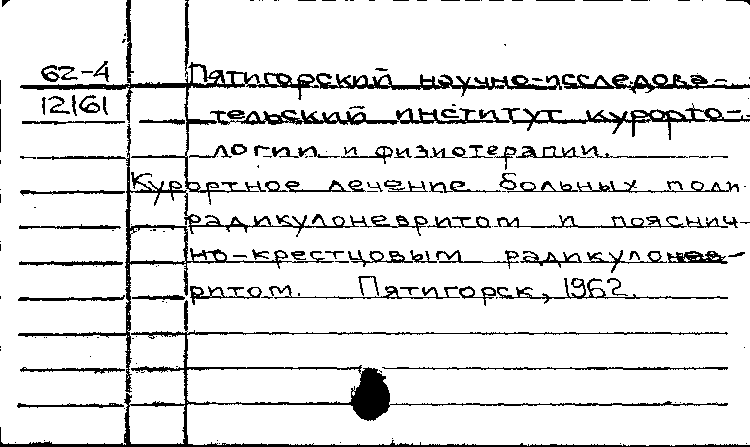 62-4 Пятигорский научно-исследова-
12161 тельский институт курорто-
логии и физиотерапии.
Курортное лечение больных поли
радикулоневритом и пояснич-
но-крестцовым радикулонев-
ритом. Пятигорск, 1962.